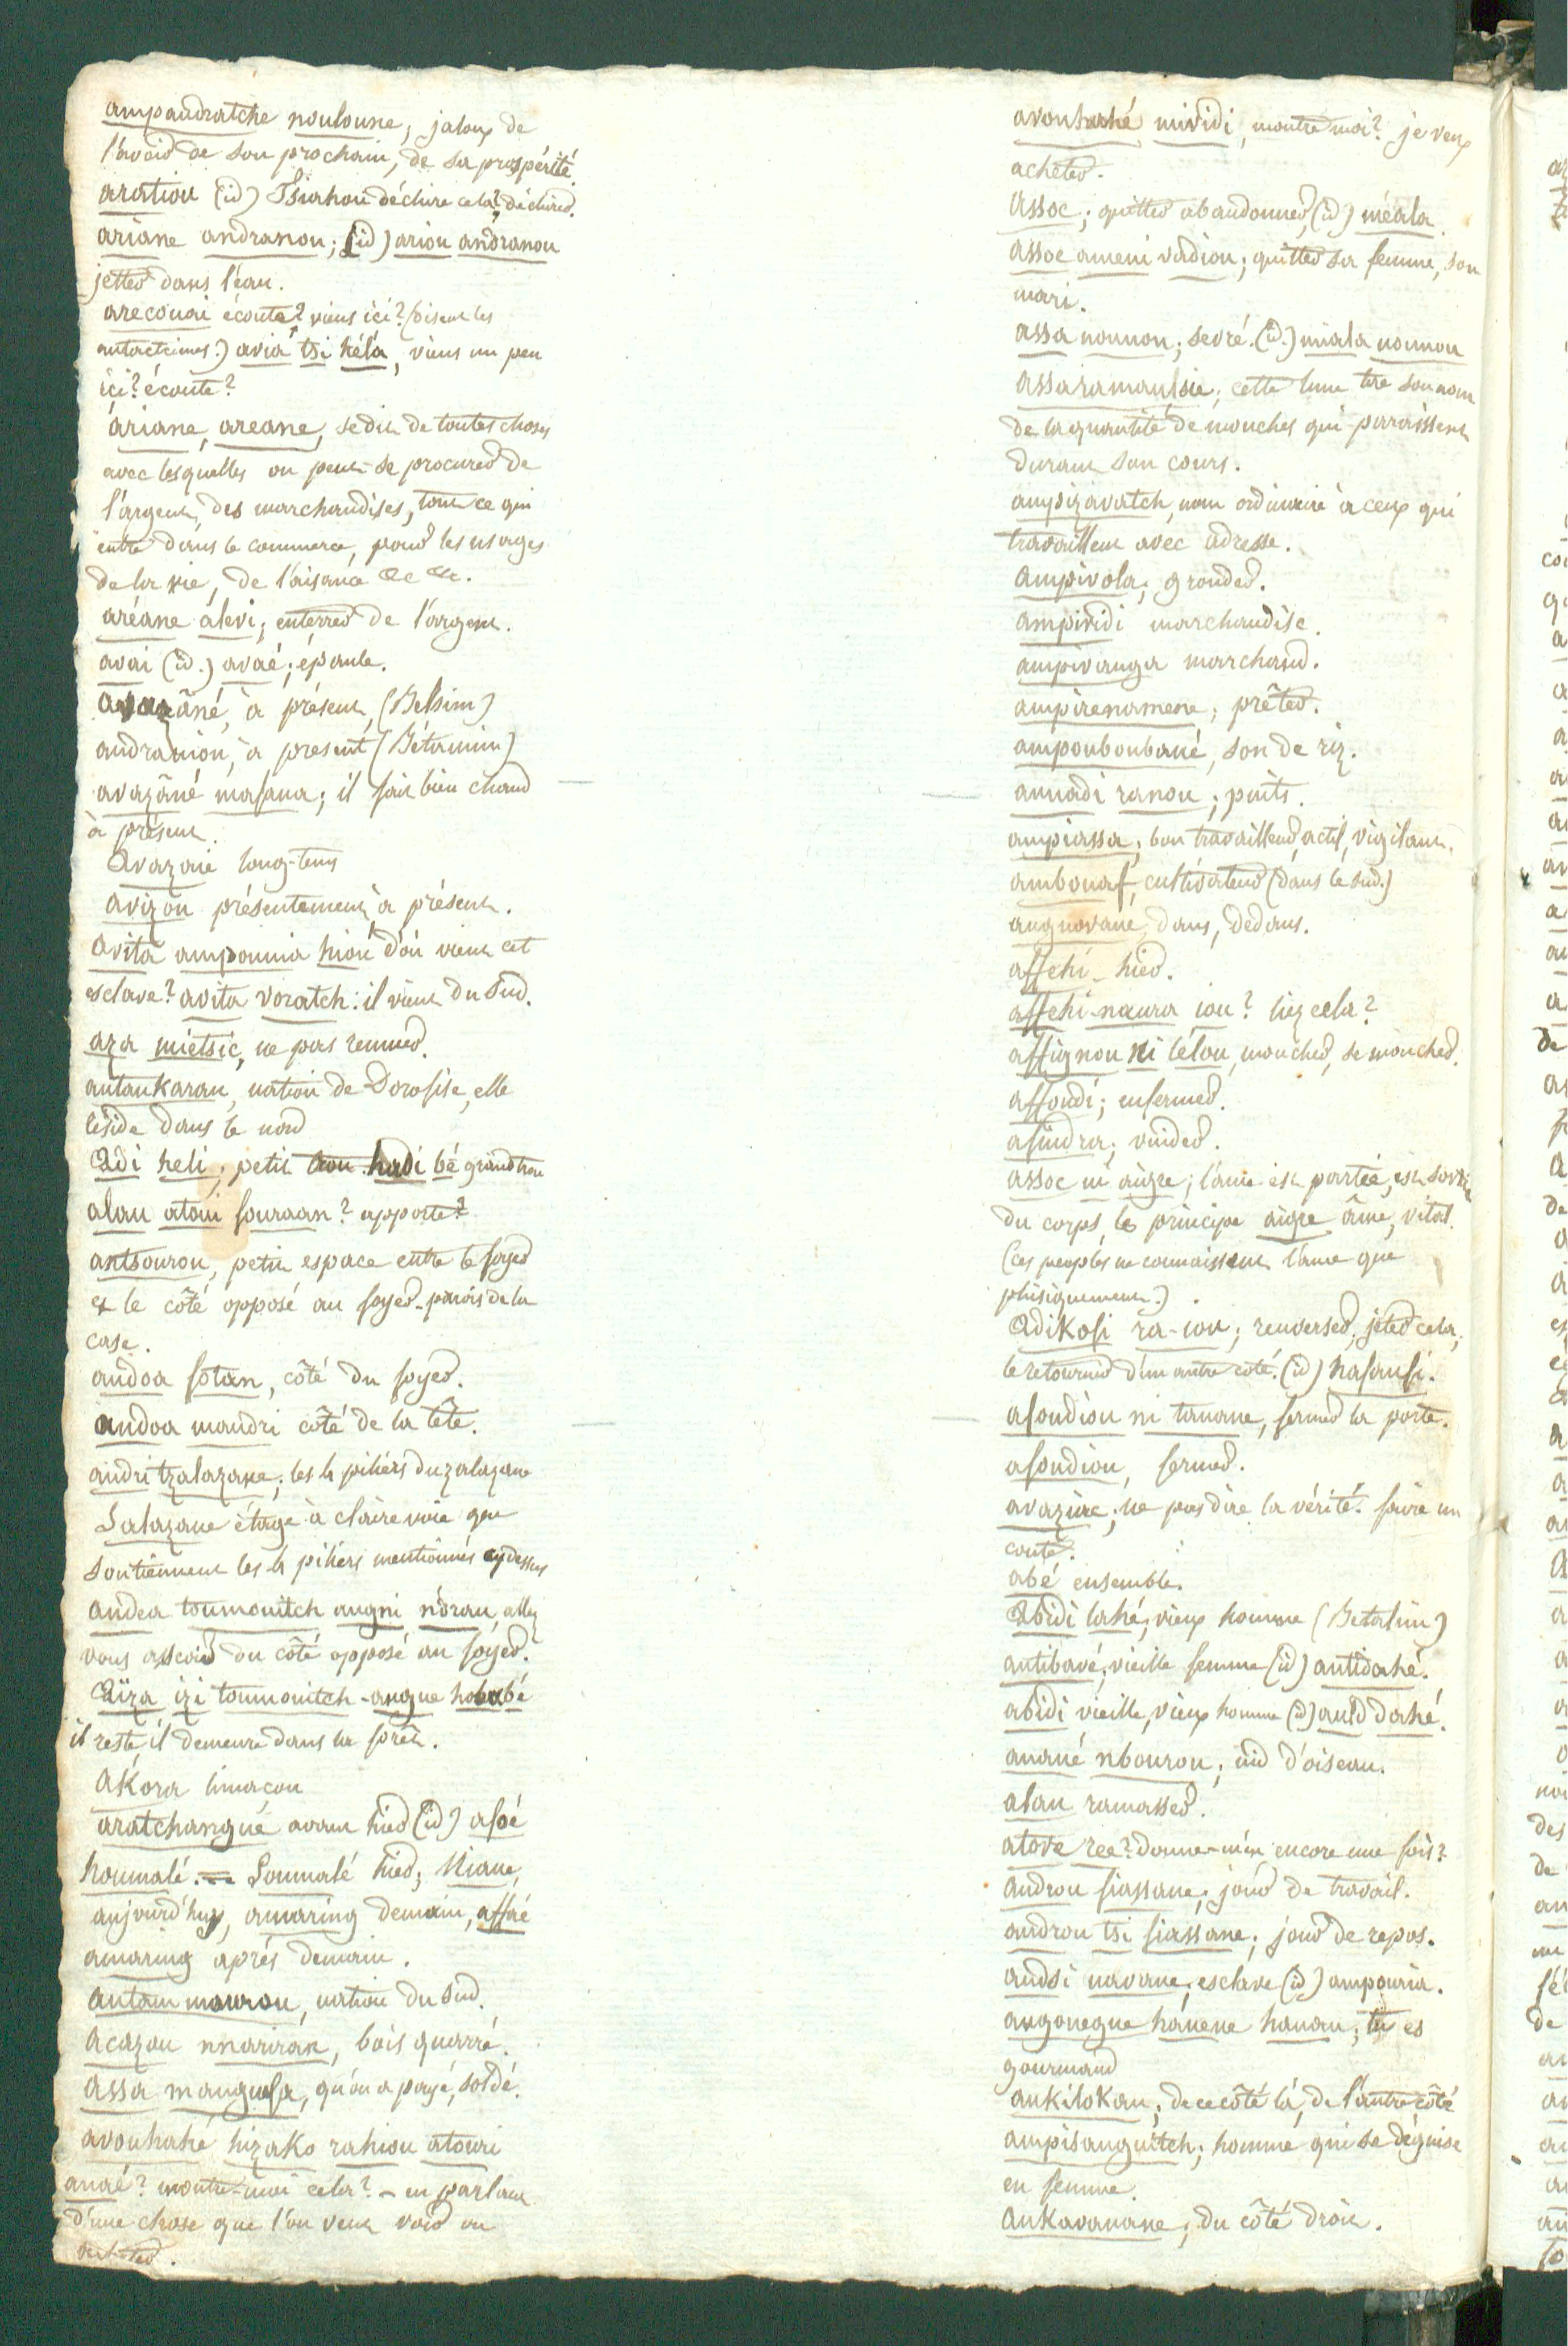 ampandratche nouloune; jaloux de
l'avoir de son prochain, de sa prospérité.
aratiou (id) Tsiahou déchire cela? déchirer.
ariane andranou; (id) ariou andranou
jetter dans l'eau.
arecouai écoute? viens ici? (disent les
antactsimes.) avia tsi kéla, viens un peu
ici? écoute?
ariane, areane, se dit de toutes choses
avec lesquelles on peut se procurer de
l'argent, des marchandises, tout ce qui
entre dans le commerce, pour les usages
de la vie, de l'aisance &c &c.
aréane álevi; enterrer de l'argent.
avai (id.) avaé; épaule.
avazâné, à présent, (Betsim)
andraniou, à present (Bétanim)
avazâné mafana; il fait bien chaud
à présent.
avazaie long-tems
avizou présentement, à présent.
avita ampouria hiou d'où vient cet
esclave? avita voratch: il vient du Sud.
aza mietsic, ne pas remuer.
antankaran, nation de Dorofise, elle
réside dans le nord
adi heli; petit trou hadi bé grand trou
alau atoui fouraan? apporte?
antsourou, petit espace entre le foyer
et le côté opposé au foyer - parois de la
case.
andoa fotan, côté du foyer.
andoa mandri côté de la tête.
andri tzalazane; les 4 piliers du zalazane
Salazane étage à claire voie que
soutiennent les 4 piliers mentionnés cydessus
andea toumouitch angni nòrau, allez
vous asseoir du côté opposé au foyer.
aïza izi toumouitch - angue
il reste, il demeure dans la forêt.
akora limaçon
aratchangué avant hier (id) afsé
houmalé. = Soumalé hier; Niane,
aujourd'huy, amaring demain, affsé
amaring après demain.
antam mourou, nation du Sud.
acazou nnariran, bois quarré.
assa manguefa, qu'on a payé, soldé.
avouhahé hizako rahiou atouri
anaé? montre-moi cela? - en parlant
d'une chose que l'on veut voir ou
acheter.
avouhahé mividi, montre moi? je veux
acheter.
assoc; quitter abandonner, (id) méala.
assoc ameni vadiou; quitter sa femme, son
mari.
assa nounou; sevré. (id.) miala nounou
assaramanssie; cette lune tire son nom
de la quantité de mouches qui paraissent
durant son cours.
ampizavatch, nom ordinaire à ceux qui
travaillent avec adresse.
ampivola; gronder.
ampividi marchandise.
ampivanga marchand.
ampirenamene; prêter.
ampouboubané, son de riz.
annadi ranou; puits.
ampiassa; bon travailleur, actif, vigilant.
ambouaf, cultivateur (dans le sud.)
angnovane, dans, dedans.
affehi - hier.
affehi-naura iou? liez cela?
affignou ni lélou, moucher, se moucher.
affoudi; enfermer.
afindra; vuider.
assoc ni aigre; l'ame est partie, est sortie
du corps, le principe aigre âme, vital.
(ces peuples ne connaissent l'ame que
phisiquement.)
adikofi ra-iou; renverser; jeter cela,
le retourner d'un autre côté. (id) hafaufi.
afoudiou ni tanane, fermer la porte.
afoudiou, fermer.
avazire; ne pas dire la vérité. faire un
conte.
abé ensemble.
abidi lahé; vieux homme (Betalim)
antibavé; vieille femme (id) antidahé.
abidi vieille, vieux homme (id) dahé.
anané nbourou; nid d'oiseau.
alau ramasser.
atove ree? donne-m'en encore une fois?
androu fiassane; jour de travail.
androu tsi fiassane; jour de repos.
andsi navane; esclave (id) ampouria.
angonegue hánene hanau; tu es
gourmand
ankilokau; de ce côté là, de l'autre côté
ampisanguitch; homme qui se déguise
en femme.
ankavanane; du côté droit.